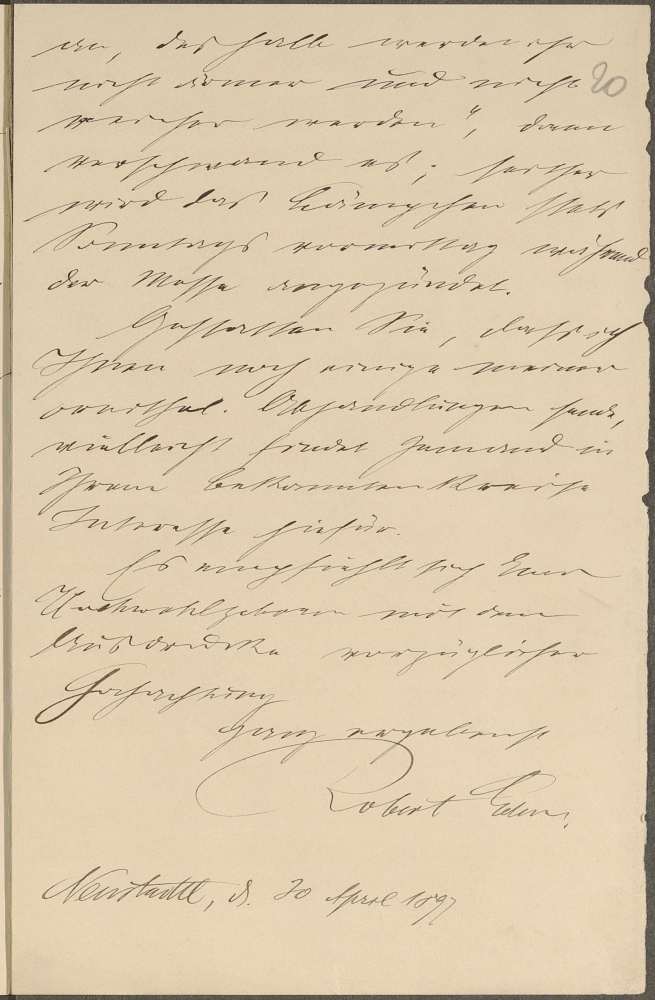 an, deshalb werdet ihr
nicht ärmer und nicht
reicher werden", dann
verschwand es; seither
wird das Lämpchen stets
Sonntags vormittag während
der Messe angezündet.
Gestatten Sie, dass ich
Ihnen noch einige meiner
ornithol. Abhandlungen sende,
vielleicht findet Jemand in
Ihrem Bekanntenkreise
Interesse hiefür.
Es empfiehlt sich Euer
Hochwohlgeboren mit dem
Ausdrucke vorzüglicher
Hochachtung
ganz ergebenst
Robert
Neustadtl, d. 30 April 1897
20